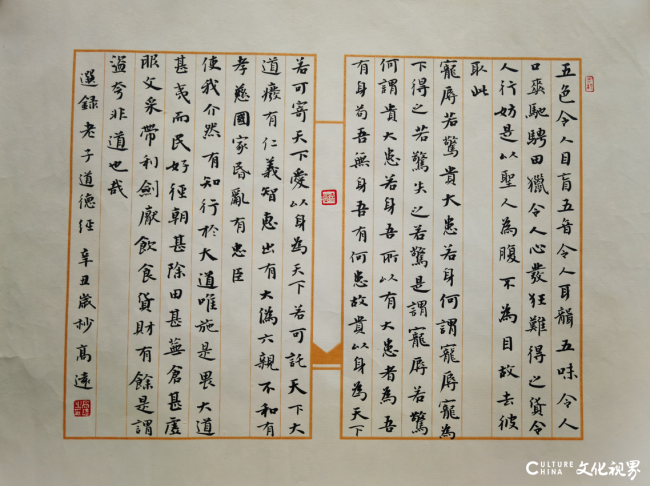 五色令人目盲五音令人耳聾五味令人
口爽馳騁田獵令人心發狂難得之貨令
人行妨是以聖人為腹不為目故去彼
取此
寵辱若驚貴大患若身何謂寵辱寵為
下得之若驚失之若驚是謂寵辱若驚
何謂貴大患若身吾所以有大患者為吾
有身苟吾無身吾有何患故貴以身為天下
若可寄天下愛以身為天下若可託天下大
道廢有仁義智惠出有大偽六親不和有
孝慈國家昏亂有忠臣
使我介然有知行於大道唯施是畏大道
甚夷而民好徑朝甚除田甚蕪倉甚虛
服文采帶利劍厭飲食貨財有餘是謂
盜夸非道也哉
選錄老子道德經辛丑歲抄高遠
CULTURE CHINA 文化视界